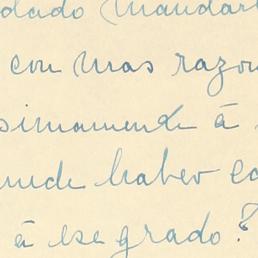 dado mandar
con mas razon
simamente á
haber
á ese grado?